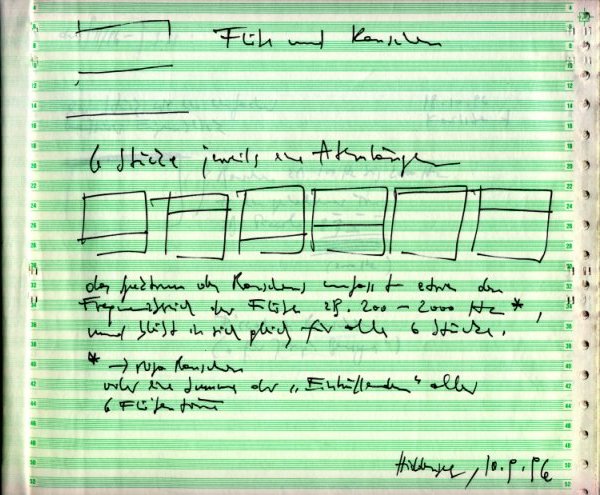 Flöte und Rauschen
6 Stücke jeweils eine Atemlänge
das Spektrum des Rauschens umfasst etwa den
Frequenzbereich der Flöte z.B. 200 – 2000 Hz *,
und bleibt in sich gleich für alle 6 Stücke.
* → rosa Rauschen
oder eine Summe der „Einhüllenden“ aller
6 Flötentöne
, 10.9.96